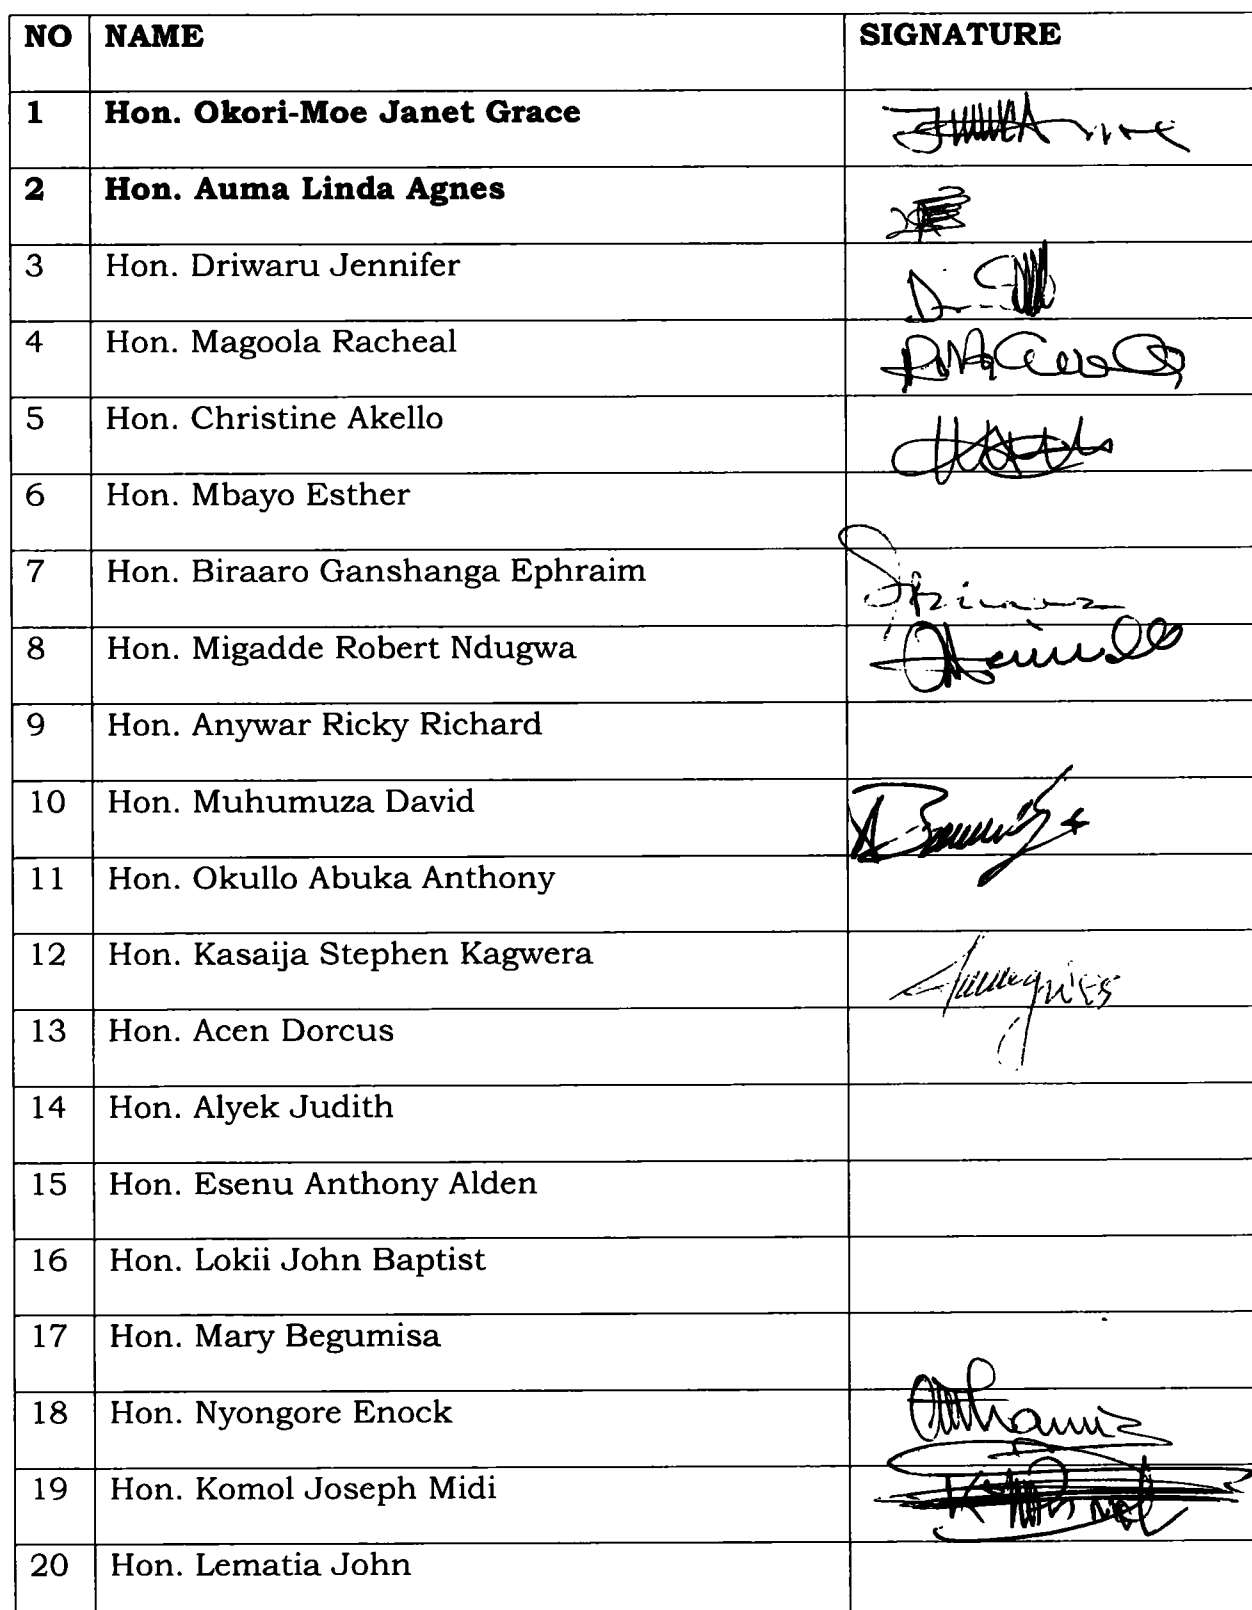 NO NAME SIGNATURE
1 Hon. Okori-Moe Janet Grace
2 Hon. Auma Linda Agnes
3 Hon. Driwaru Jennifer
4 Hon. Magoola Racheal
5 Hon. Christine Akello
6 Hon. Mbayo Esther
7 Hon. Biraaro Ganshanga Ephraim
8 Hon. Migadde Robert Ndugwa
9 Hon. Anywar Ricky Richard
10 Hon. Muhumuza David
11 Hon. Okullo Abuka Anthony
12 Hon. Kasaija Stephen Kagwera
13 Hon. Acen Dorcus
14 Hon. Alyek Judith
15 Hon. Esenu Anthony Alden
16 Hon. Lokii John Baptist
17 Hon. Mary Begumisa
18 Hon. Nyongore Enock
19 Hon. Komol Joseph Midi
20 Hon. Lematia John